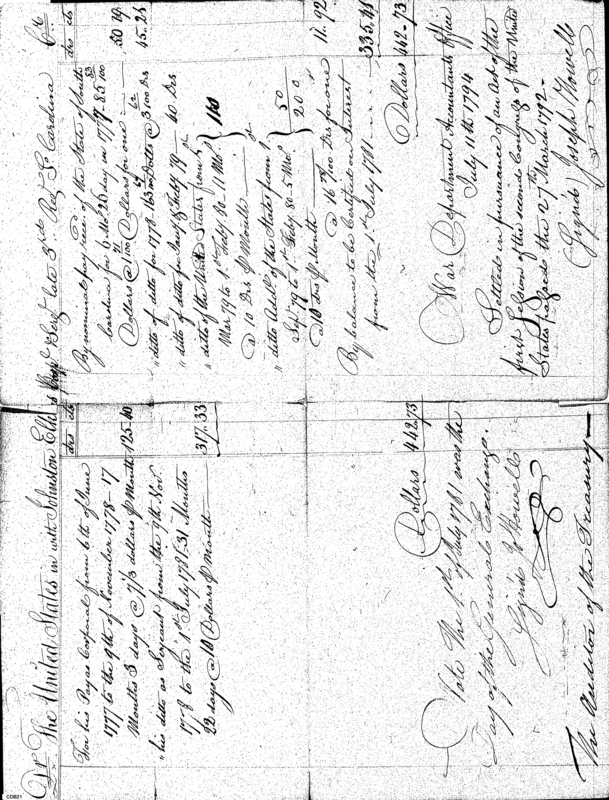 Dr The United States in acct with Johnston Ellis Corpl & Sergt late 3rd Regt So Carolina Cr
drs cts
For his Pay as Corporal from 6th of June
1777 to the 9th of November 1778 - 17
Months 3 days @ 7 1/3 dollars ℔ Month 125.40
" his ditto as Sergeant from the 9th Nov.
1778 to the 1st July 1781 - 31 Months
22 days @ 10 Dollars ℔ Month 317.33
Dollars 442.73
Note The 1st of July 1781 was the
Day of the General Exchange.
Signd J Howell
The Auditor of the Treasury
drs cts
By nominal pay recd of the State of South
Carolina for 6 Mos 20 day in 1777 - 85
Dollars @ Dollars for one 50.79
" ditto of ditto for 1778 163 Dolls @ 3 Drs 45.25
" ditto of ditto for Jany & Feby 79 40 Drs
" ditto of the United States from
Mar 79 to 1st Feby 80. 11 Mos 110
@ 10 Drs ℔ Month
" ditto Addl of the States from
Sep 79 to 1st Feby 80. 5 Mos 50
@ 10 Drs ℔ Month 200
@ 16 Drs for one 11.92
By balance to be Certified on Interest
from the 1st July 1781 335.
Dollars 442-73
War Department Accountants Office
July 11th 1794
Settled in pursuance of an Act of the
first Session of the second Congress of the United
States passed the 27th March 1792 -
Signd Joseph Howell
CDB21